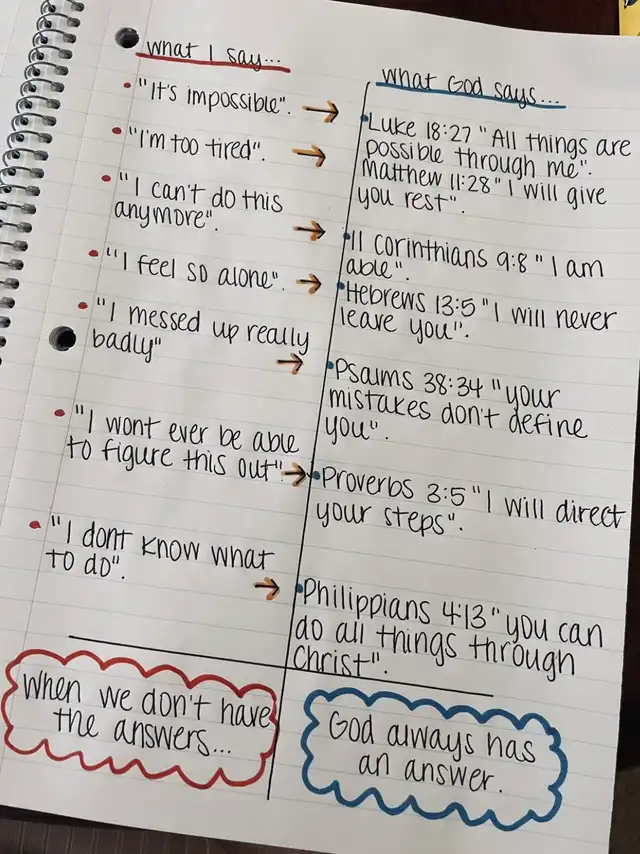 what I say...
"It's impossible".
"I'm too tired".
"I can't do this
anymore".
"I feel so alone".
"I messed up really
badly"
"I wont ever be able
to figure this out".
"I dont know what
to do".
what God says...
Luke 18:27 "All things are
possible through me".
Matthew 11:28 "I will give
you rest".
II Corinthians 9:8 "I am
able".
Hebrews 13:5 "I will never
leave you".
Psalms 38:34 "your
mistakes don't define
you".
Proverbs 3:5 "I will direct
your steps".
Philippians 4:13 "you can
do all things through
Christ".
When we don't have
the answers...
God always has
an answer.